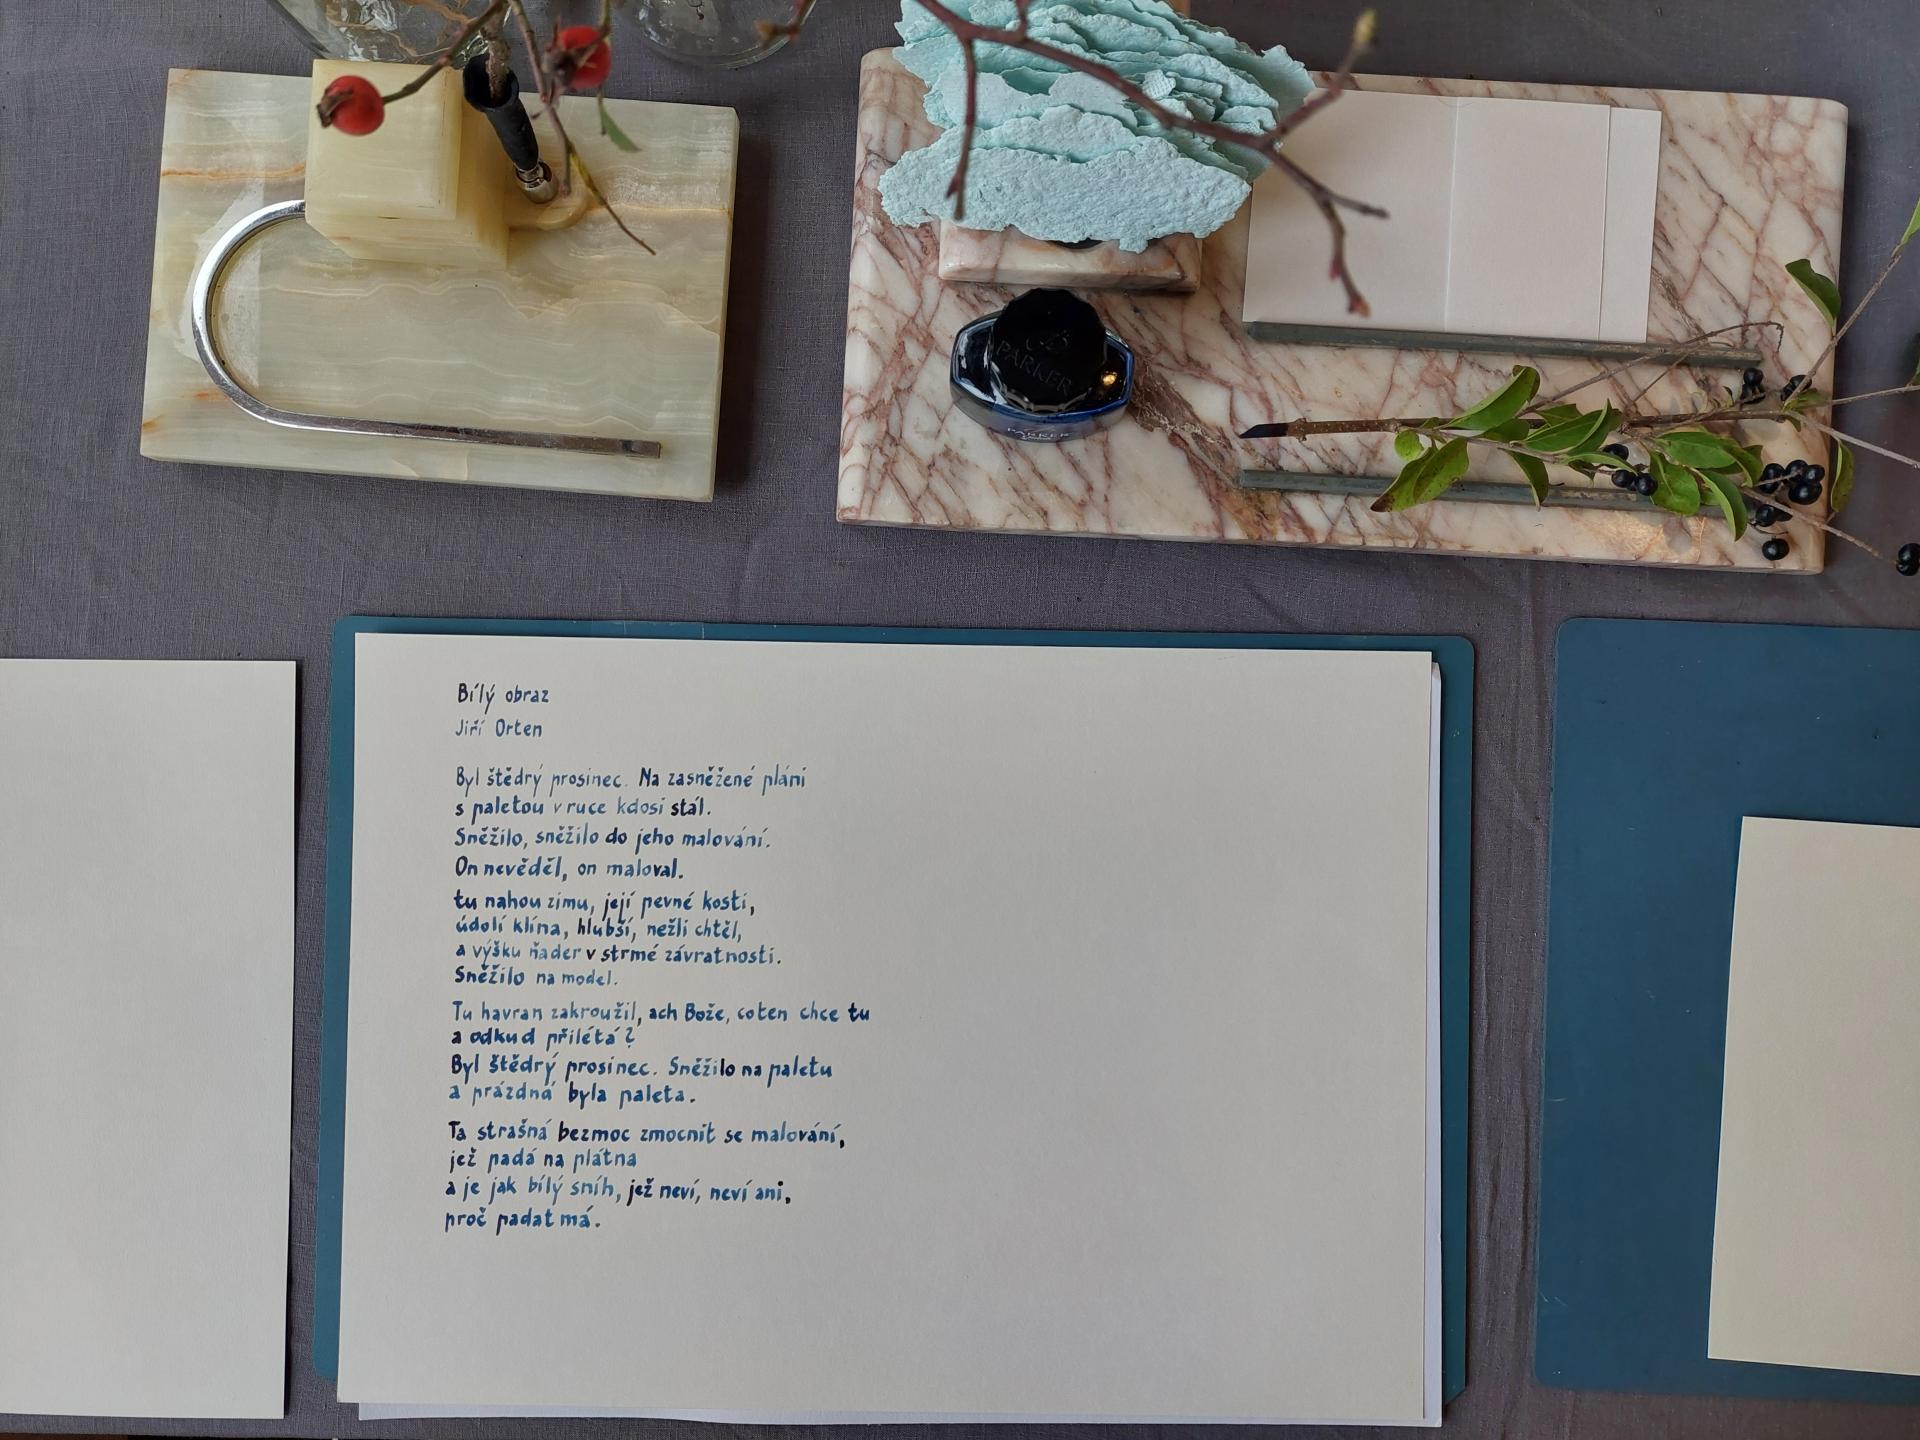 PARKER
PARKER
Bílý obraz
Jiří Orten
Byl štědrý prosinec. Na zasněžené pláni
s paletou v ruce kdosi stál.
Sněžilo, sněžilo do jeho malování.
On nevěděl, on maloval.
tu nahou zimu, její pevné kosti,
údolí klína, hlubší, nežli chtěl,
a výšku ňader v strmé závratnosti.
Sněžilo na model.
Tu havran zakroužil, ach Bože, co ten chce tu
a odkud přilétá?
Byl štědrý prosinec. Sněžilo na paletu
a prázdná byla paleta.
Ta strašná bezmoc zmocnit se malování,
jež padá na plátna
a je jak bílý sníh, jež neví, neví ani,
proč padat má.